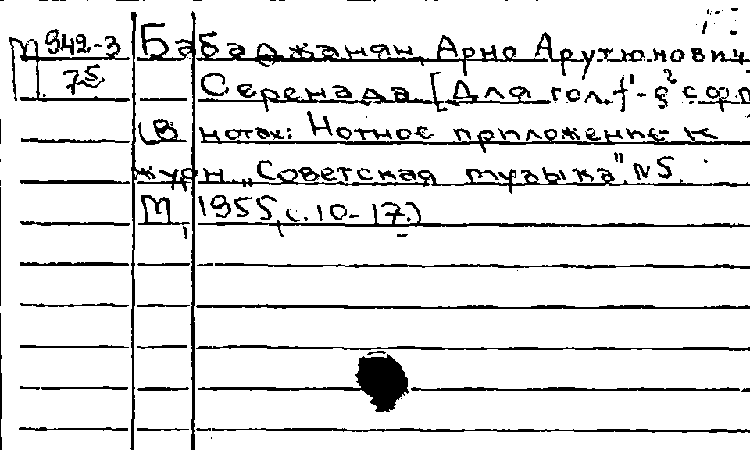 М 942-3 Бабаджанян, Арно Арутюнович
75 Серенада [Для гол. f'-g² с ф.п
(В нотах: Нотное приложение к
журн. „Советская музыка". №5.
М, 1955, с. 10-17.)